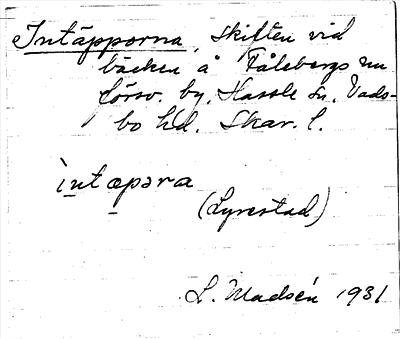 Intäpporna, skiften vid
bäcken å Fålebergs nu
försv. by, Hassle sn, Vads-
bo hd. Skar. l.
ìntæpəra
(Lyrestad)
L. Madsén 1931